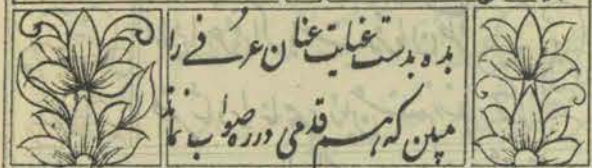 بده بدست عنایت عنان عرفی را
مبین که هم قدمی در ره صواب نماند